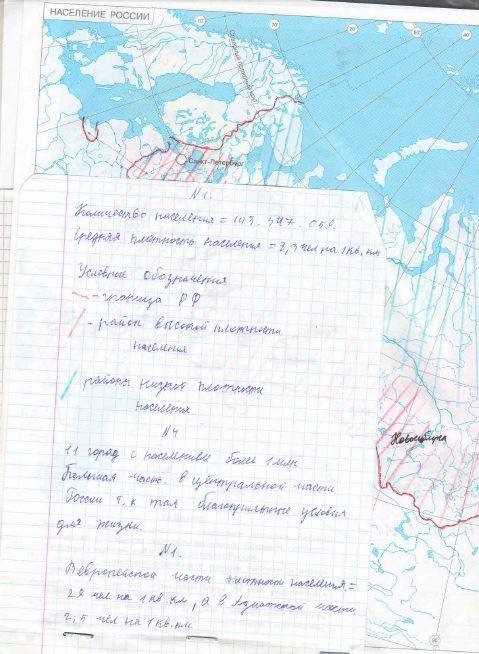 НАСЕЛЕНИЕ РОССИИ
Санкт-Петербург
Новосибирск
N 1.
Количество населения = 143. 347. 059.
Средняя плотность населения = 8,3 чел на 1 кв, км
Условное обозначения
- граница РФ
- район высокой плотности
населения
районы низкой плотности
населения
N 4
11 город с населением более 1 млн
Большая часть. в центральной части
России т, к там благоприятные условия
для жизни.
N 1.
В европейской части плотность населения =
на 1 кв км, а в Азиатской части
2,5 чел на 1 кв. км